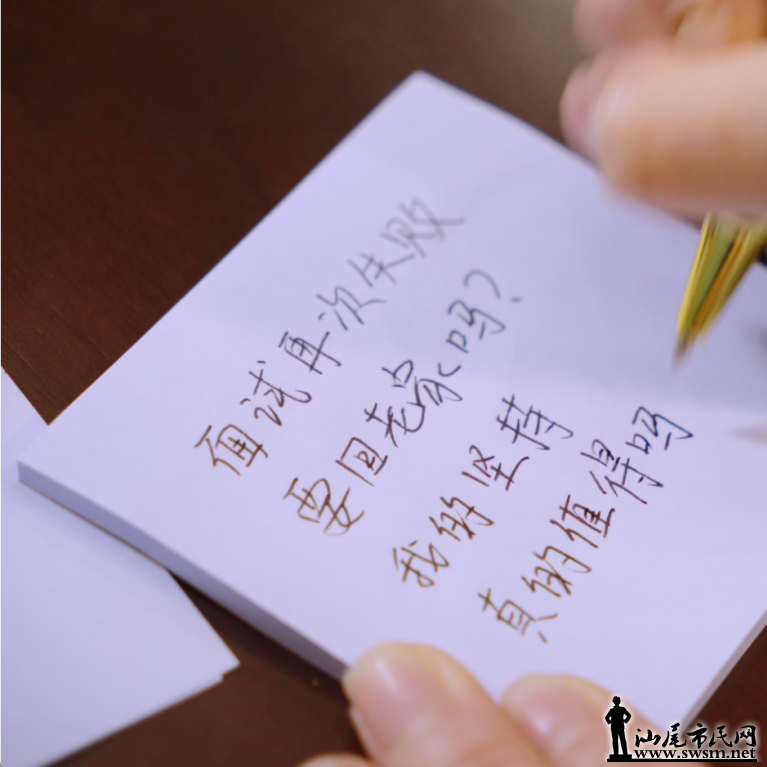 面试再次失败
要回老家吗?
我的坚持
真的值得吗
汕尾市民网
www.swsm.net